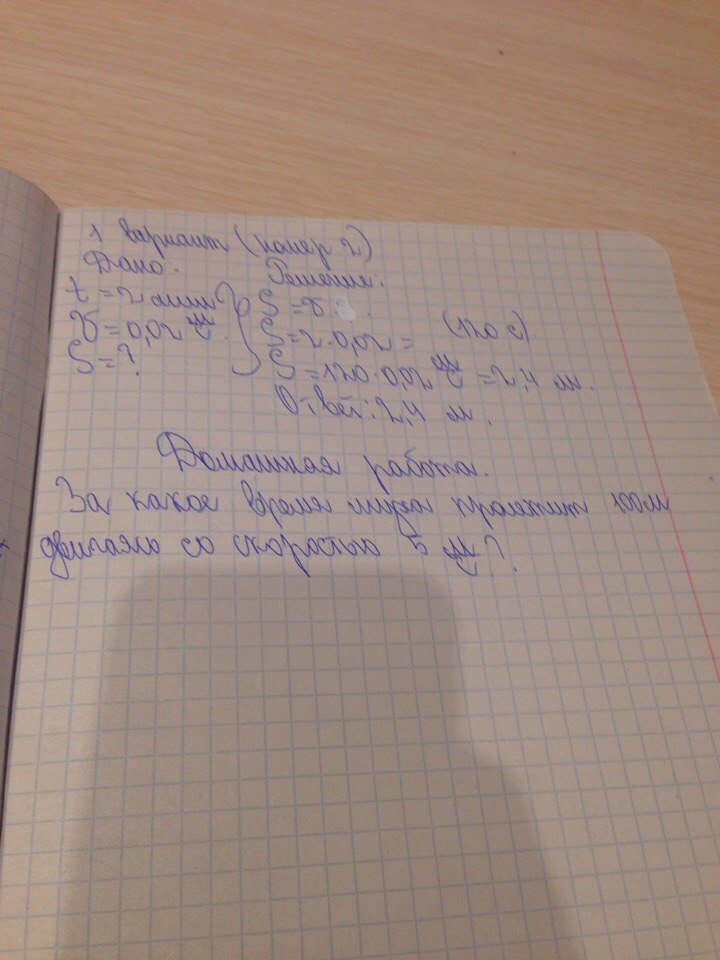 1 вариант (номер 2)
Дано: Решение:
t = 2 мин S = v · .
v = 0,02 м/с. S = 2 · 0,02 = (120 с).
S = ? S = 120 · 0,02 м/с = 2,4 м.
Ответ: 2,4 м.
Домашная работа.
За какое время муха пролетит 100м
двигаясь со скоростью 5 м/с?